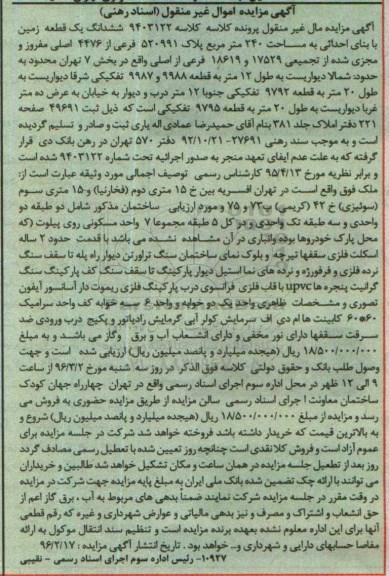 آگهی مزایده اموال غیر منقول (اسناد رهنی)
آگهی مزایده مال غیر منقول پرونده کلاسه کلاسه ۹۴۰۳۱۲۲ ششدانگ یک قطعه زمین
با بنای احداثی به مساحت ۲۴۰ متر مربع پلاک ۵۲۰۹۹۱ فرعی از ۴۴۷۶ اصلی مفروز و
مجزی شده از تجمیعی ۱۷۵۲۹ و ۱۸۶۱۹ فرعی از اصلی واقع در بخش ۷ تهران محدود به
حدود: شمالا دیواریست به طول ۱۲ متر به قطعه ۹۹۸۸ و ۹۹۸۷ تفکیکی شرقا دیواریست به
طول ۲۰ متر به قطعه ۹۷۹۲ تفکیکی جنوبا ۱۲ متر درب و دیوار به خیابان به عرض ده متر
غربا دیواریست به طول ۲۰ متر به قطعه ۹۷۹۵ تفکیکی است که ذیل ثبت ۴۹۶۹۱ صفحه
۲۲۱ دفتر املاک جلد ۳۸۱ بنام آقای حمیدرضا عمادی اله یاری ثبت و صادر و تسلیم گردیده
است و به موجب سند رهنی ۲۷۶۹۱-۹۲/۱۰/۲۱ دفتر ۵۷۰ تهران در رهن بانک دی قرار
گرفته که به علت عدم ایفای تعهد منجر به صدور اجرائیه تحت شماره ۹۴۰۳۱۲۲ شده است
و برابر نظریه مورخ ۹۵/۴/۱۳ کارشناس رسمی توصیف اجمالی مورد وثیقه عبارت است از:
ملک فوق واقع است در تهران افسریه بین خ ۱۵ متری دوم (فخارنیا) و ۱۵ متری سوم
(سوئیزی) خ ۴۲ (کریمی) پ ۷۳ و ۷۵ و مورد ارزیابی ساختمان مذکور شامل دو طبقه دو
واحدی و سه طبقه تک واحدی و در کل ۵ طبقه مجموعا ۷ واحد مسکونی روی پیلوت (که
محل پارک خودروها بوده وانباری در آن مشاهده نشده می باشد با قدمت حدود ۲ ساله
اسکلت فلزی سقفها تیرچه و بلوک نمای ساختمان سنگ تراورتن دیوار راه پله تا سقف سنگ
نرده فلزی و فرفورژه و نرده های نما استیل دیوار پارکینگ تا سقف سنگ کف پارکینگ سنگ
گرانیت پنجره ها upvc با قاب فلزی فرانسوی درب پارکینگ فلزی ریموت دار آسانسور آیفون
تصوری و مشخصات ظاهری واحد یک دو خوابه و واحد ۶ سه خوابه کف واحد سرامیک
۶۰*۶۰ کابینت ها ام دی اف سرمایش کولر آبی گرمایش رادیاتور و پکیج درب ورودی ضد
سرقت سقفها دارای نور مخفی و دارای انشعاب آب و برق وگاز می باشد و به مبلغ
۱۸/۵۰۰/۰۰۰/۰۰۰ ریال (هیجده میلیارد و پانصد میلیون ریال) ارزیابی شده است و جهت
وصول طلب بانک و حقوق دولتی کلاسه فوق الذکر در روز سه شنبه مورخ ۹۶/۳/۲ از ساعت
۹ الی ۱۲ ظهر در محل اداره سوم اجرای اسناد رسمی واقع در تهران چهارراه جهان کودک
ساختمان معاونت اجرای اسناد رسمی سالن مزایده از طریق مزایده حضوری به فروش می
رسد و مزایده از مبلغ ۱۸/۵۰۰/۰۰۰/۰۰۰ ریال (هیجده میلیارد و پانصد میلیون ریال) شروع و
به بالاترین قیمت که خریدار داشته باشد فروخته خواهد شد شرکت در جلسه مزایده برای
عموم آزاد است و فروش کلا نقدی است چنانچه روز تعیین شده با تعطیل رسمی مصادف گردد
روز بعد از تعطیل جلسه مزایده در همان ساعت و مکان تشکیل خواهد شد طالبین و خریداران
می توانند با ارائه چک تضمین شده بانک ملی ایران به مبلغ پایه مزایده جهت شرکت در مزایده
در وقت مقرر در جلسه مزایده شرکت نمایند ضمنا بدهی های مربوط به آب ، برق گاز اعم از
حق انشعاب و اشتراک و مصرف و نیز بدهی مالیاتی و عوارض شهرداری و غیره که رقم قطعی
آنها برای این اداره معلوم نشده بعهده برنده مزایده است و تنظیم سند انتقال موکول به ارائه
مفاصا حسابهای دارایی و شهرداری و... خواهد بود . تاریخ انتشار آگهی مزایده : ۹۶/۲/۱۷
۱۰۹۲۷- رئیس اداره سوم اجرای اسناد رسمی - نقیبی